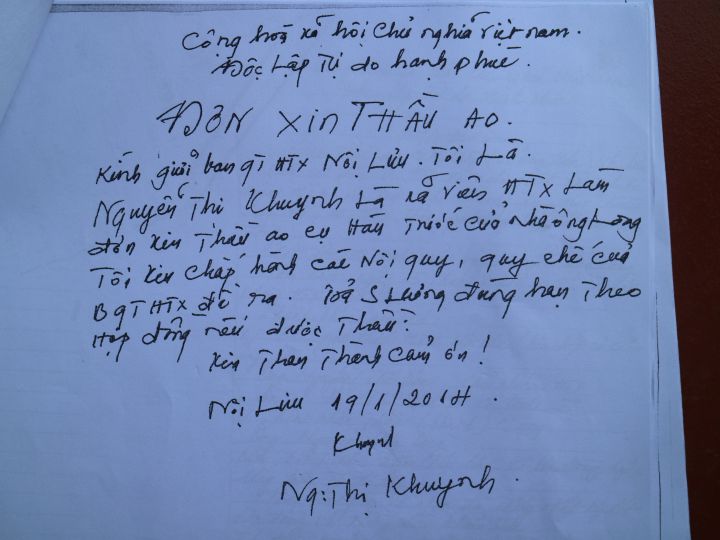 Cộng hoà xã hội Chủ nghĩa việt nam.
Độc Lập Tự do hạnh phúc.
ĐƠN XIN THẦU AO.
Kính gửi ban qT HTX Nội Lưu. Tôi Là.
Nguyễn Thị Khuynh Là xã viên HTX Làm
đơn xin Thầu ao cụ Hán Trước cửa nhà ông Long
Tôi xin chấp hành các Nội quy, quy chế của
BqT HTX đề ra. Trả S Lượng đúng hạn Theo
Hợp đồng nếu được Thầu.
Xin Thân Thành cảm ơn!
Nội Lưu 19/1/2014.
Khuynh
Ng: Thị Khuynh.